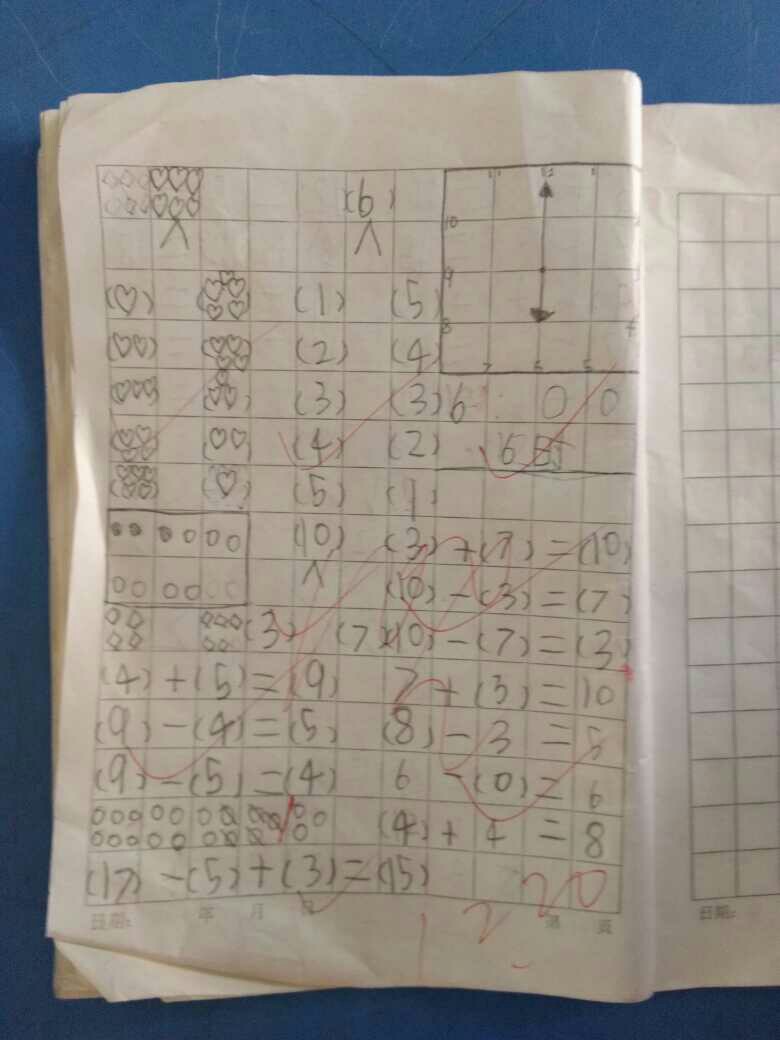 (6)
11 12 1
10
(1) (5)
9
(2) (4)
8 4
7 6 5
(3) (3) 6 : 0 0
(4) (2) 6时
(5) (1)
(10) (3)+(7)=(10)
(10)-(3)=(7)
(3) (7) (10)-(7)=(3)
(4)+(5)=(9) 7+(3)=10
(9)-(4)=(5) (8)-3=5
(9)-(5)=(4) 6-(0)=6
(4)+4=8
(17)-(5)+(3)=(15)
日期: 年 月 日 第 页
日期: